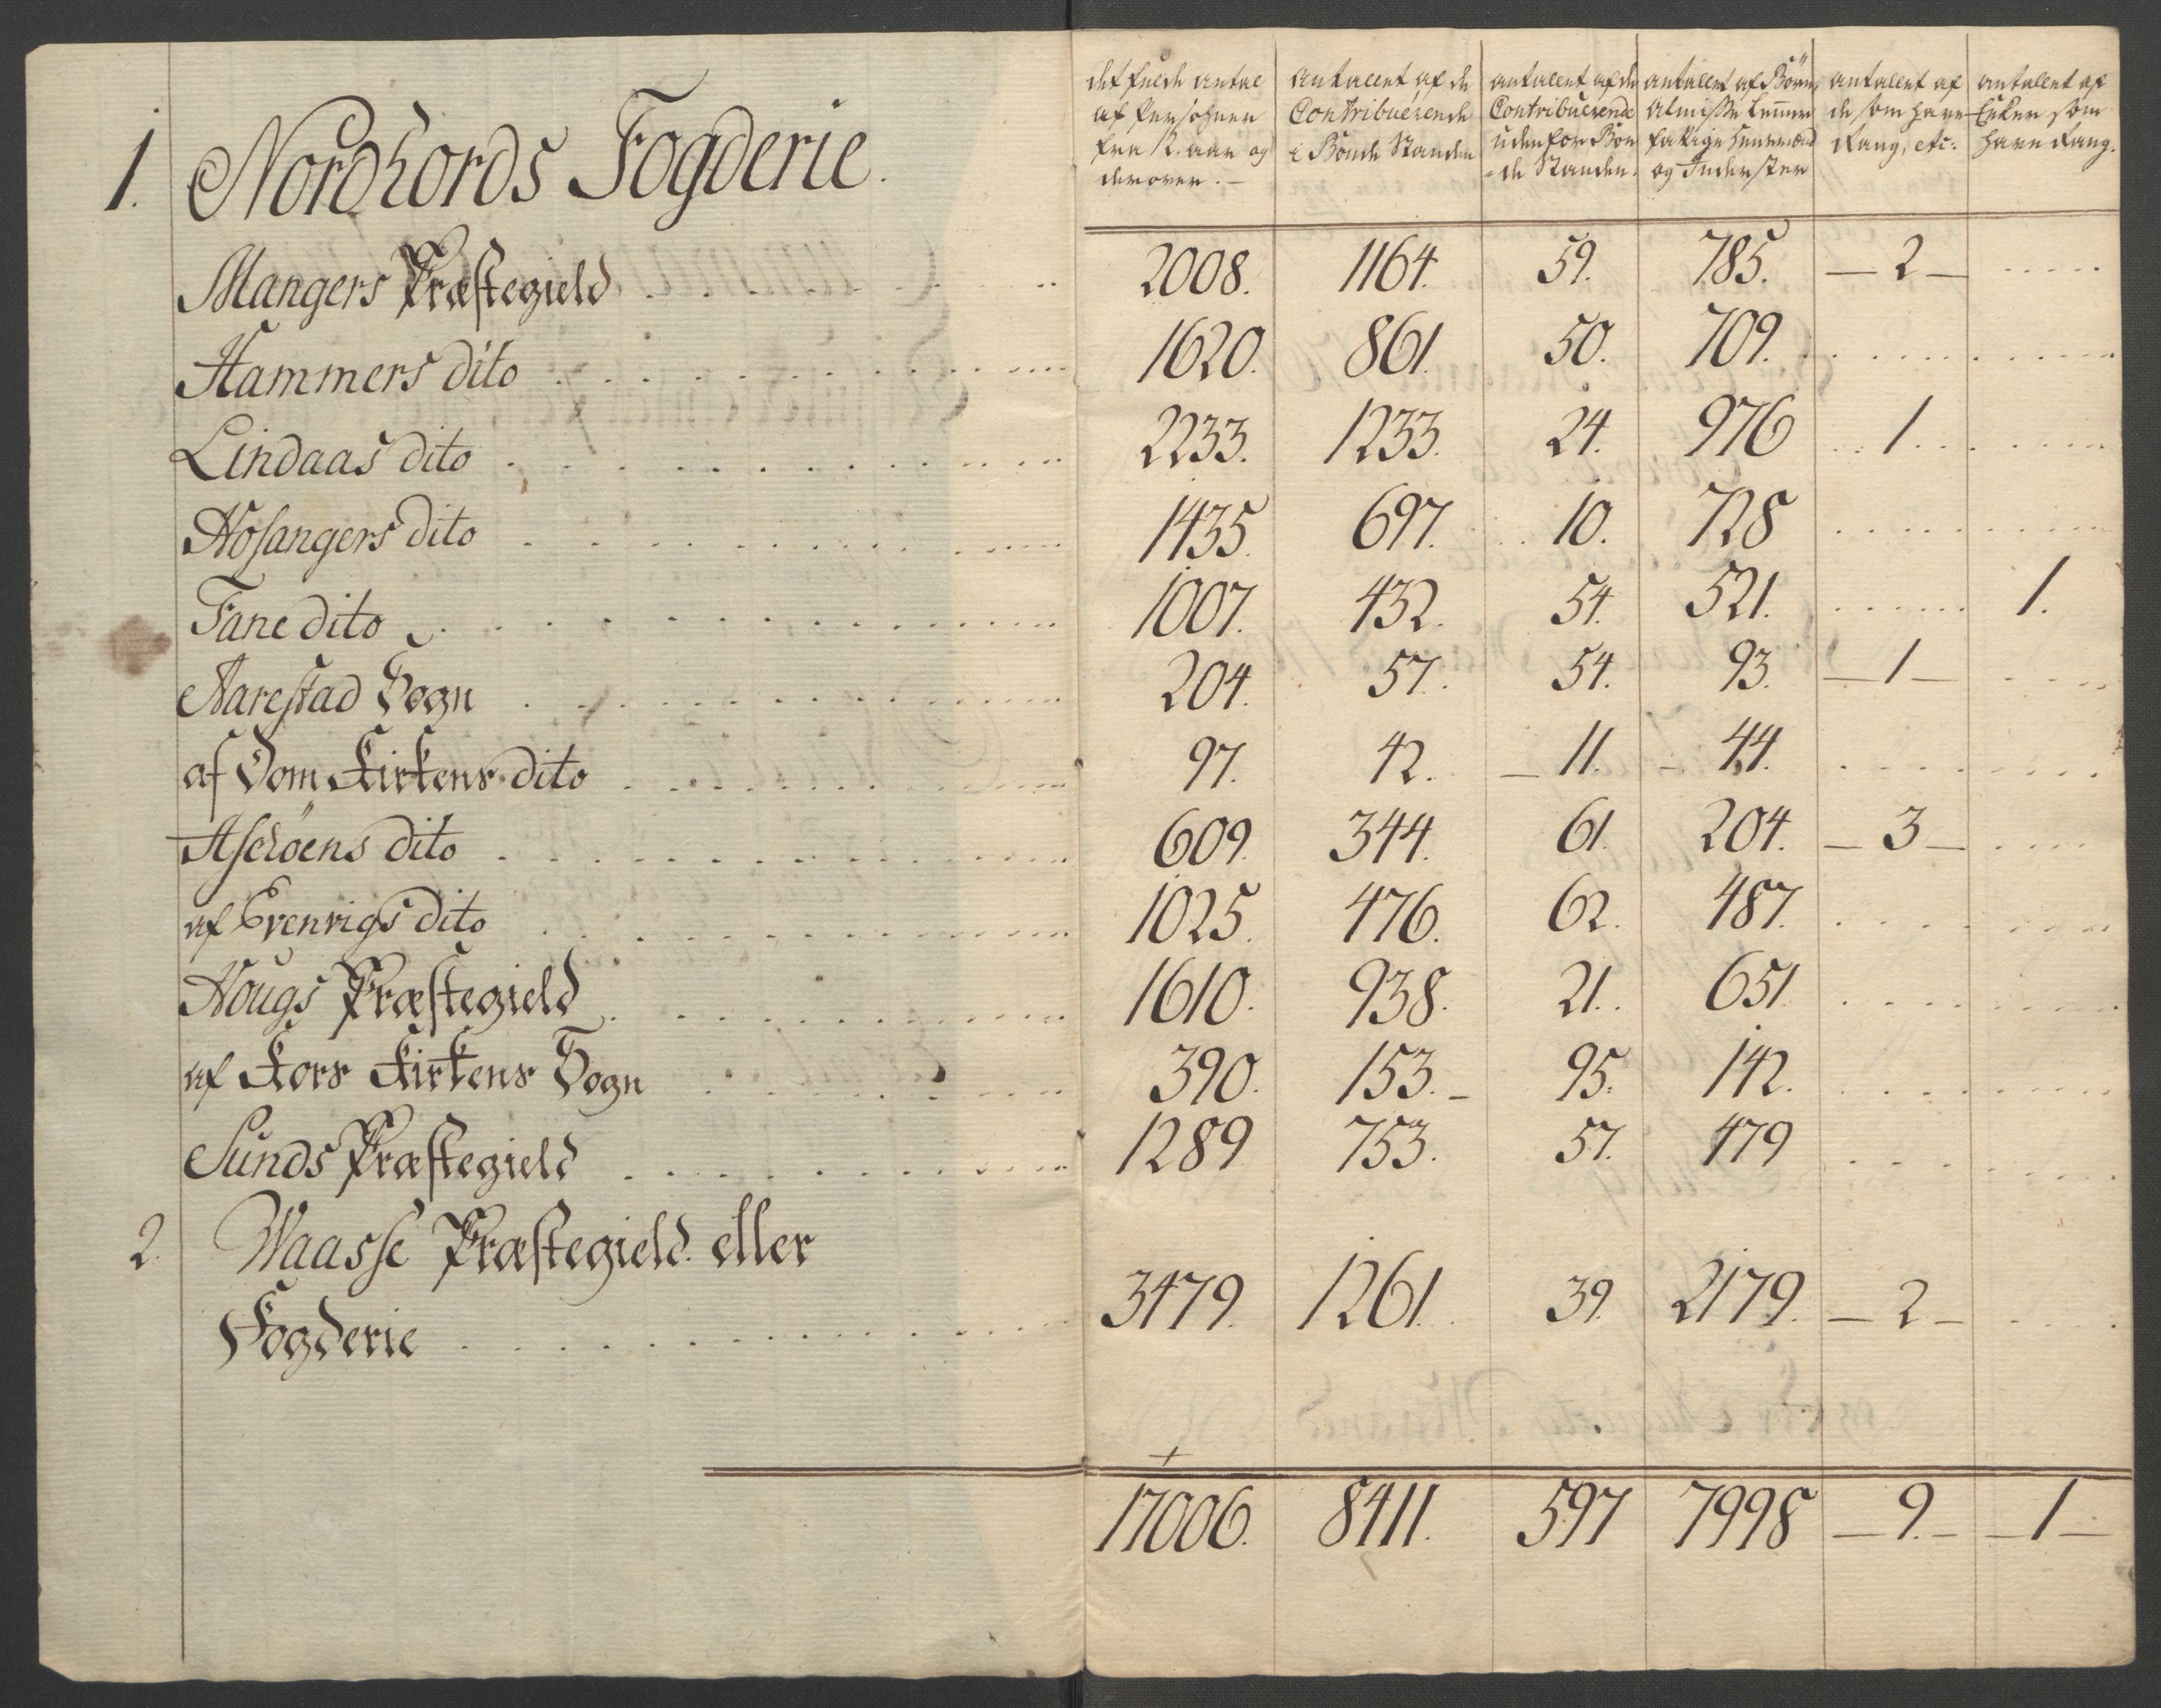 det fulde antal af Persohner fra 12. aar og derover. | Antallet af de Contribuerende i Bonde Standen | antallet af de Contribuerende uden for Bonde Standen. | antallet af Börn, Almisse Lemmer fattige Huusmænd og Inderster | antallet af de som have Rang, etc: | antallet af Enker som have Rang.
1. Nordhords Fogderie.
Mangers Præstegield 2008. 1164. 59. 785. — 2 —
Hammers dito 1620. 861. 50. 709.
Lindaas dito 2233. 1233. 24. 976 1
Hosangers dito 1435. 697. 10. 728
Fane dito 1007. 432. 54. 521. 1.
Aarestad Sogn 204. 57. 54. 93. — 1 —
af Dom Kirkens dito 97. 42. — 11. — 44.
Aschöens dito 609. 344. 61. 204. — 3 —
af Evenvigs dito 1025. 476. 62. 487.
Hougs Præstegield 1610. 938. 21. 651.
af Kors Kirkens Sogn 390. 153. — 95. 142.
Sunds Præstegield 1289 753. 57. 479
2. Waasse Præstegield eller
Fogderie 3479. 1261. 39. 2179. — 2 —
17006. 8411. 597 7998 — 9. — — 1 —